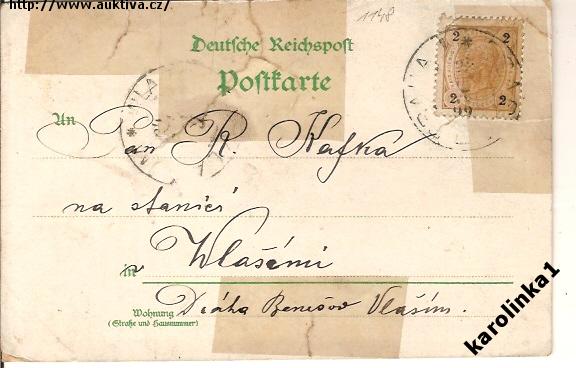 http://www.auktiva.cz/
1148
Deutsche Reichspost
Postkarte
2 2
2 2
99
An Pan R Kafka
na stanici
in Wlašimi
Wohnung Dráha Benešov Vlašim.
(Straße und Hausnummer)
karolinka1